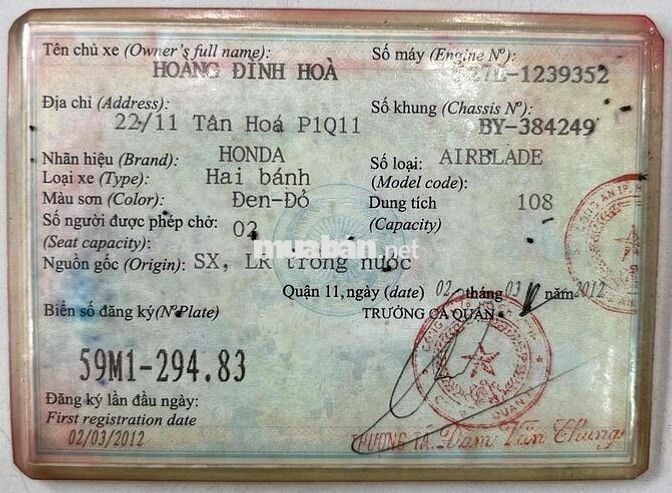 Tên chủ xe (Owner's full name):
HOÀNG ĐÌNH HOÀ
Số máy (Engine Nº):
27E-1239352
Địa chỉ (Address):
22/11 Tân Hoá P1Q11
Số khung (Chassis Nº):
BY-384249
Nhãn hiệu (Brand): HONDA
Số loại: AIRBLADE
(Model code):
Loại xe (Type): Hai bánh
Màu sơn (Color): Đen-Đỏ
Dung tích 108
(Capacity)
Số người được phép chở: 02
(Seat capacity):
muaban.net
Nguồn gốc (Origin): SX, LR trong nước
Quận 11, ngày (date) 02 tháng 03 năm 2012
Biển số đăng ký (Nº Plate)
TRƯỞNG CA QUẬN
59M1-294.83
Đăng ký lần đầu ngày:
First registration date
02/03/2012
THƯỢNG TÁ. Đàm Văn Chung